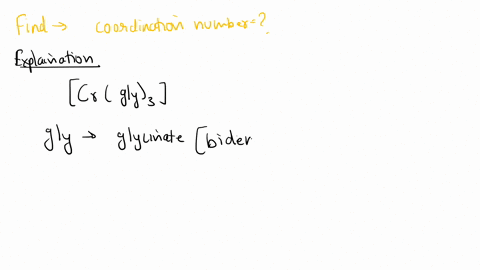 Find → coordination number=?
Explaination
[Cr(gly)₃]
gly → glycinate [biden